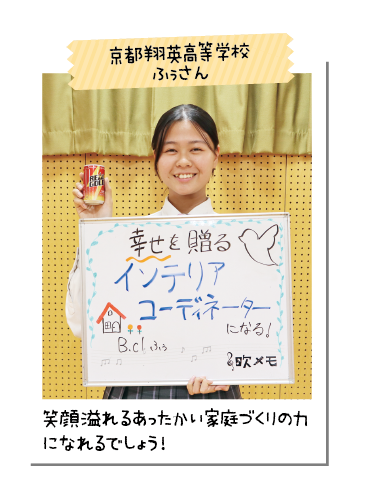 京都翔英高等学校
ふぅさん
REAL
GOLD
幸せを贈る
インテリア
コーディネーター
になる!
B.cl ふぅ
歌メモ
笑顔溢れるあったかい家庭づくりの力
になれるでしょう!